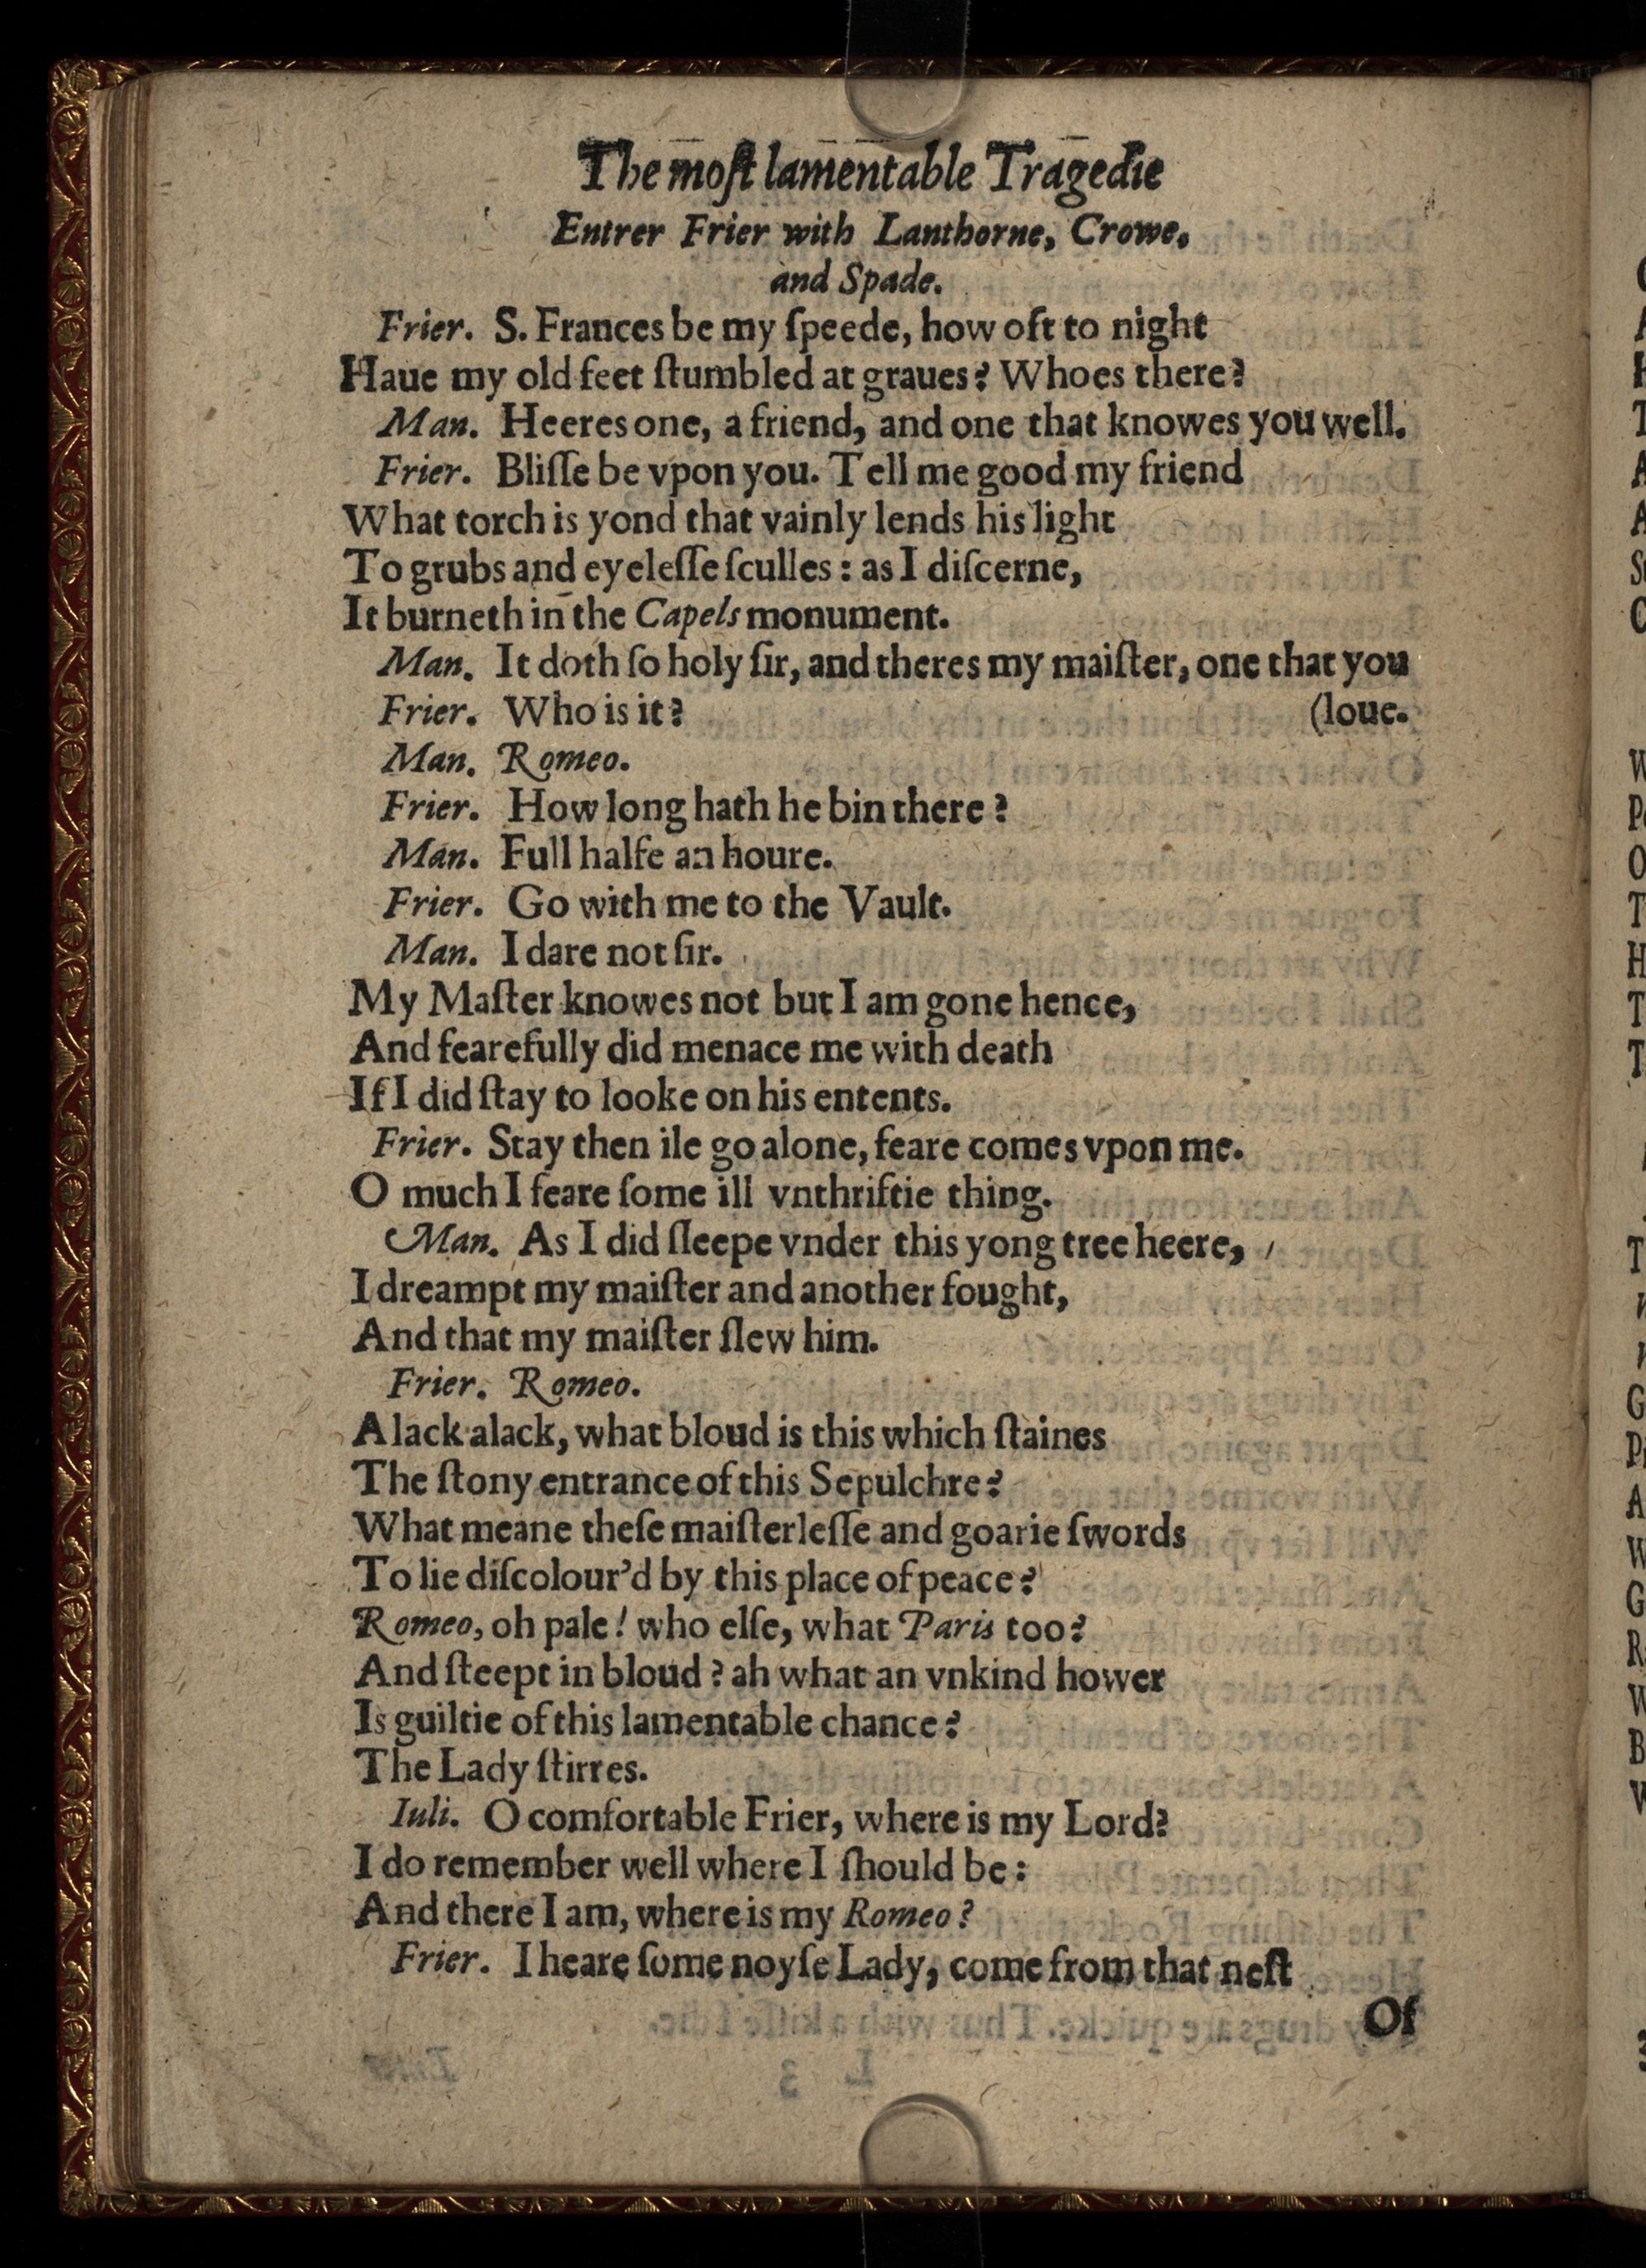 The moſt lamentable Tragedie
Entrer Frier with Lanthorne, Crowe,
and Spade.
Frier. S. Frances be my ſpeede, how oft to night
Haue my old feet ſtumbled at graues? Whoes there?
Man. Heeres one, a friend, and one that knowes you well.
Frier. Bliſſe be vpon you. Tell me good my friend
What torch is yond that vainly lends his light
To grubs and eyeleſſe ſculles: as I diſcerne,
It burneth in the Capels monument.
Man. It doth ſo holy ſir, and theres my maiſter, one that you
Frier. Who is it? (loue.
Man. Romeo.
Frier. How long hath he bin there?
Man. Full halfe an houre.
Frier. Go with me to the Vault.
Man. I dare not ſir.
My Maſter knowes not but I am gone hence,
And fearefully did menace me with death
If I did ſtay to looke on his entents.
Frier. Stay then ile go alone, feare comes vpon me.
O much I feare ſome ill vnthriftie thing.
Man. As I did ſleepe vnder this yong tree heere,
I dreampt my maiſter and another fought,
And that my maiſter ſlew him.
Frier. Romeo.
Alack alack, what bloud is this which ſtaines
The ſtony entrance of this Sepulchre?
What meane theſe maiſterleſſe and goarie ſwords
To lie diſcolour'd by this place of peace?
Romeo, oh pale! who elſe, what Paris too?
And ſteept in bloud? ah what an vnkind hower
Is guiltie of this lamentable chance?
The Lady ſtirres.
Iuli. O comfortable Frier, where is my Lord?
I do remember well where I ſhould be:
And there I am, where is my Romeo?
Frier. I heare ſome noyſe Lady, come from that neſt
Of